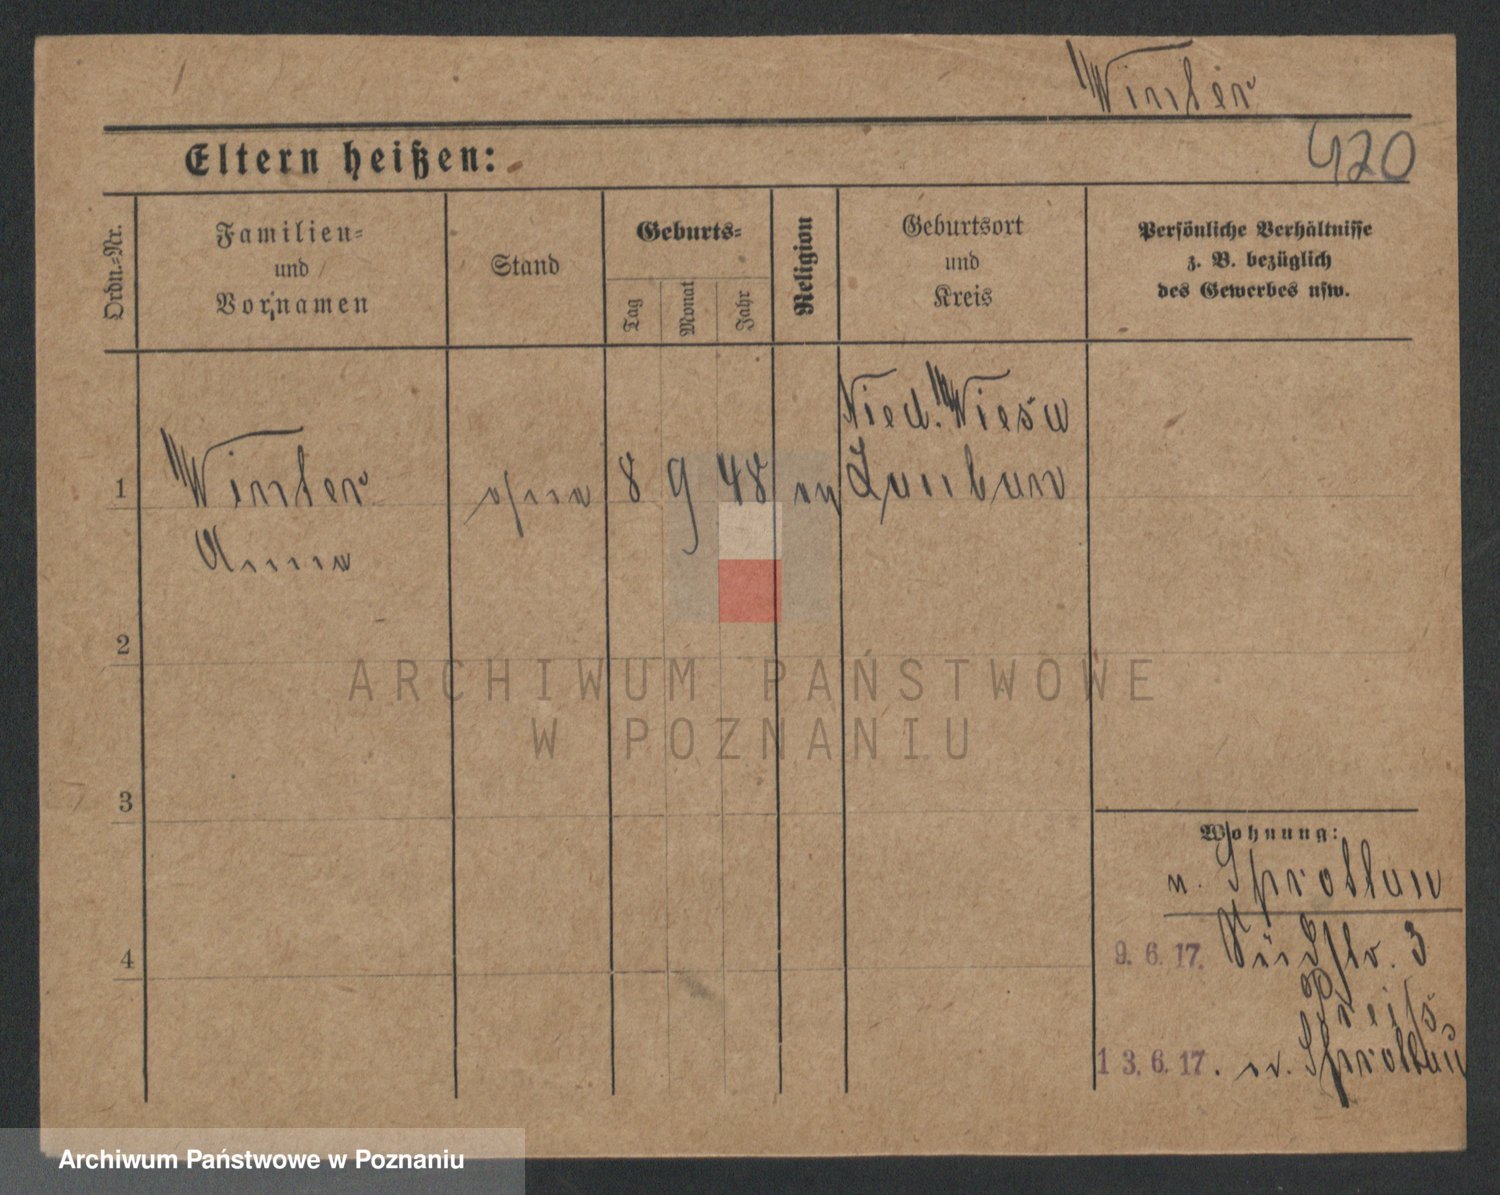 Winter
420
Eltern heißen:
Ordn.-Nr.
Familien-
und
Vornamen
Stand
Geburts-
Tag
Monat
Jahr
Religion
Geburtsort
und
Kreis
Persönliche Verhältnisse
z. B. bezüglich
des Gewerbes usw.
Nied. Wiesa
1 Winter ohne 8 9 48 ev Lauban
Anna
2
3
4
Wohnung:
v. Sprottau
9. 6. 17. 3
Preiß
13. 6. 17. n. Sprottau
ARCHIWUM PAŃSTWOWE
W POZNANIU
Archiwum Państwowe w Poznaniu